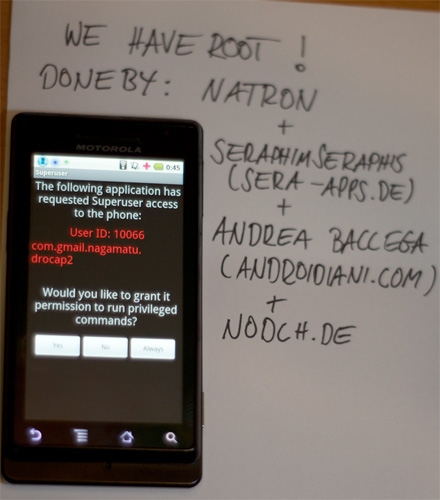 WE HAVE ROOT !
DONE BY: NATRON
+
SERAPHIMSERAPHIS
(SERA-APPS.DE)
+
ANDREA BACCEGA
(ANDROIDIANI.COM)
+
NODCH.DE
MOTOROLA
0:45
Superuser
The following application has
requested Superuser access
to the phone:
User ID: 10066
com.gmail.nagamatu.
drocap2
Would you like to grant it
permission to run privileged
commands?
Yes No Always